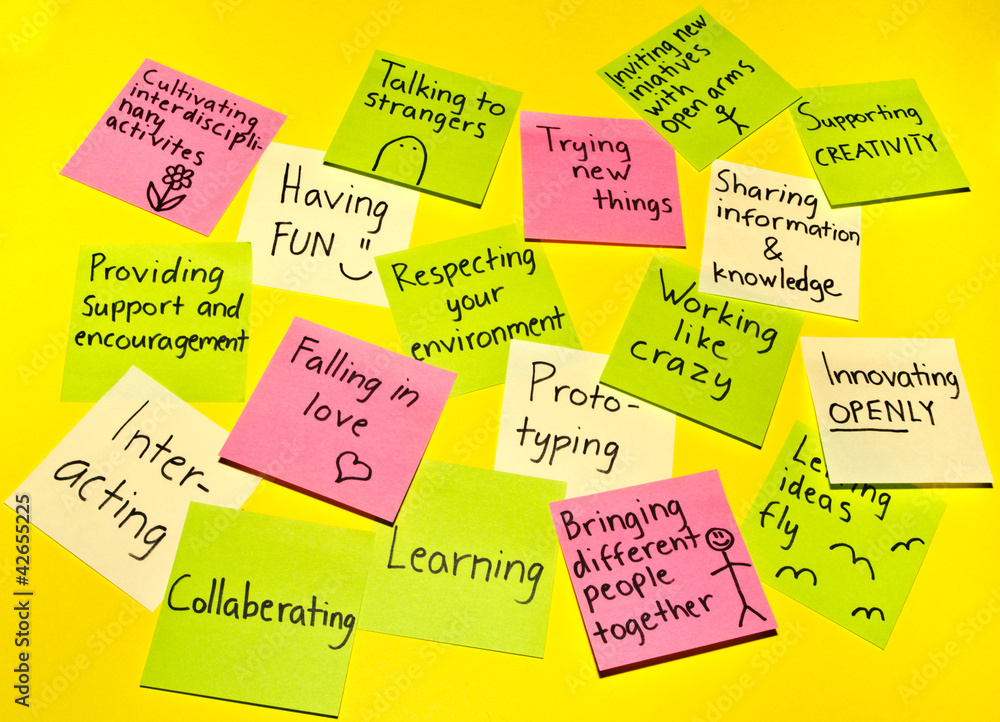 Cultivating
interdiscipli-
nary
activites
Talking to
strangers
Inviting new
iniatives
with
open arms
Supporting
CREATIVITY
Trying
new
things
Having
FUN
Sharing
information
&
knowledge
Providing
Support and
encouragement
Respecting
your
environment
Working
like
crazy
Falling in
love
Proto-
typing
Innovating
OPENLY
Inter-
acting
Learning
ideas
fly
Bringing
different
people
together
Collaberating
Adobe Stock | #42655225